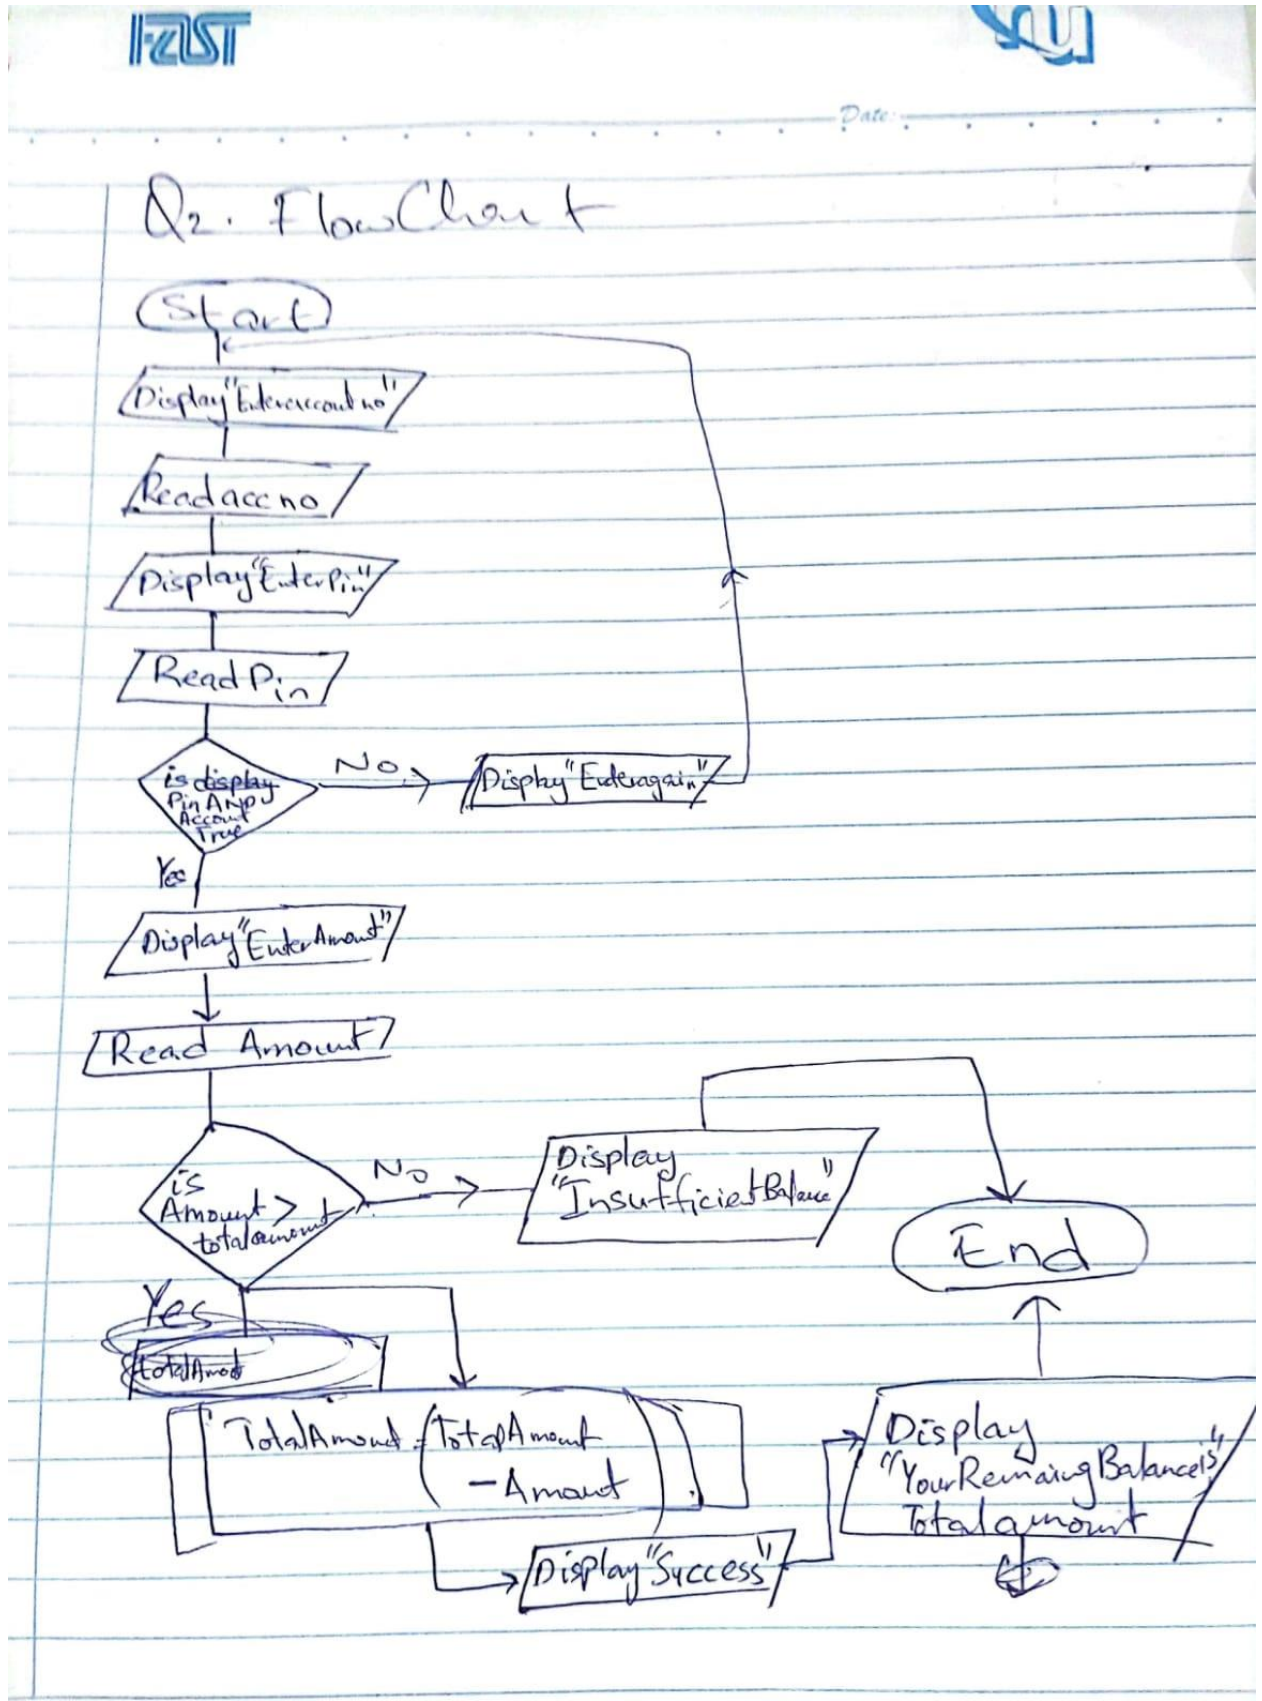 FAST
nu
Date:
Q2. FlowChart
Start
Display "Enter account no"
Read acc no
Display "Enter Pin"
Read Pin
is display
Pin AND
Account
True
No
Display "Enter again"
Yes
Display "Enter Amount"
Read Amount
is
Amount >
total amount
No
Display
"Insufficient Balance"
End
Yes
totalAmot
TotalAmount = (TotalAmount
- Amount
Display "Success"
Display
"Your Remaing Balance is"
Total amount